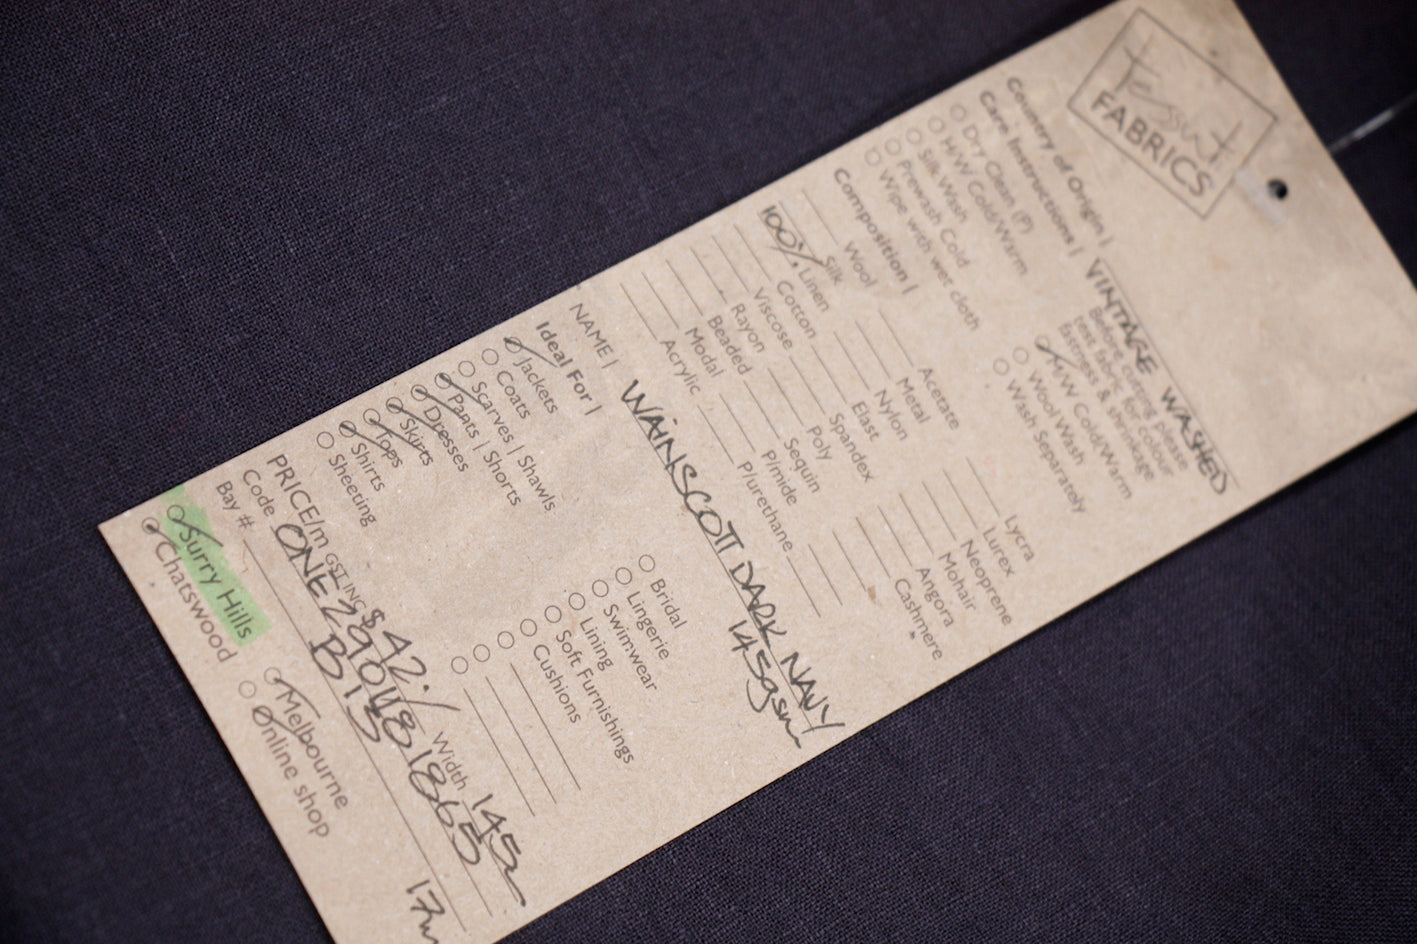 Tessuti
FABRICS
Country of Origin | VINTAGE WASHED
Care Instructions | Before cutting please
test fabric for colour
fastness & shrinkage
Dry Clean (P)
H/W Cold/Warm
Silk Wash
Prewash Cold
Wipe with wet cloth
M/W Cold/Warm
Wool Wash
Wash Separately
Composition |
Wool
Silk
100% Linen
Cotton
Viscose
Rayon
Beaded
Modal
Acrylic
Acetate
Metal
Nylon
Elast
Spandex
Poly
Sequin
P/mide
P/urethane
Lycra
Lurex
Neoprene
Mohair
Angora
Cashmere
NAME | WAINSCOTT DARK NAVY
145gsm
Ideal For |
Jackets
Coats
Scarves | Shawls
Pants | Shorts
Dresses
Skirts
Tops
Shirts
Sheeting
Bridal
Lingerie
Swimwear
Lining
Soft Furnishings
Cushions
PRICE/m GST INC $42. Width 145
Code
Bay # B13
17m
Surry Hills
Chatswood
Melbourne
Online shop